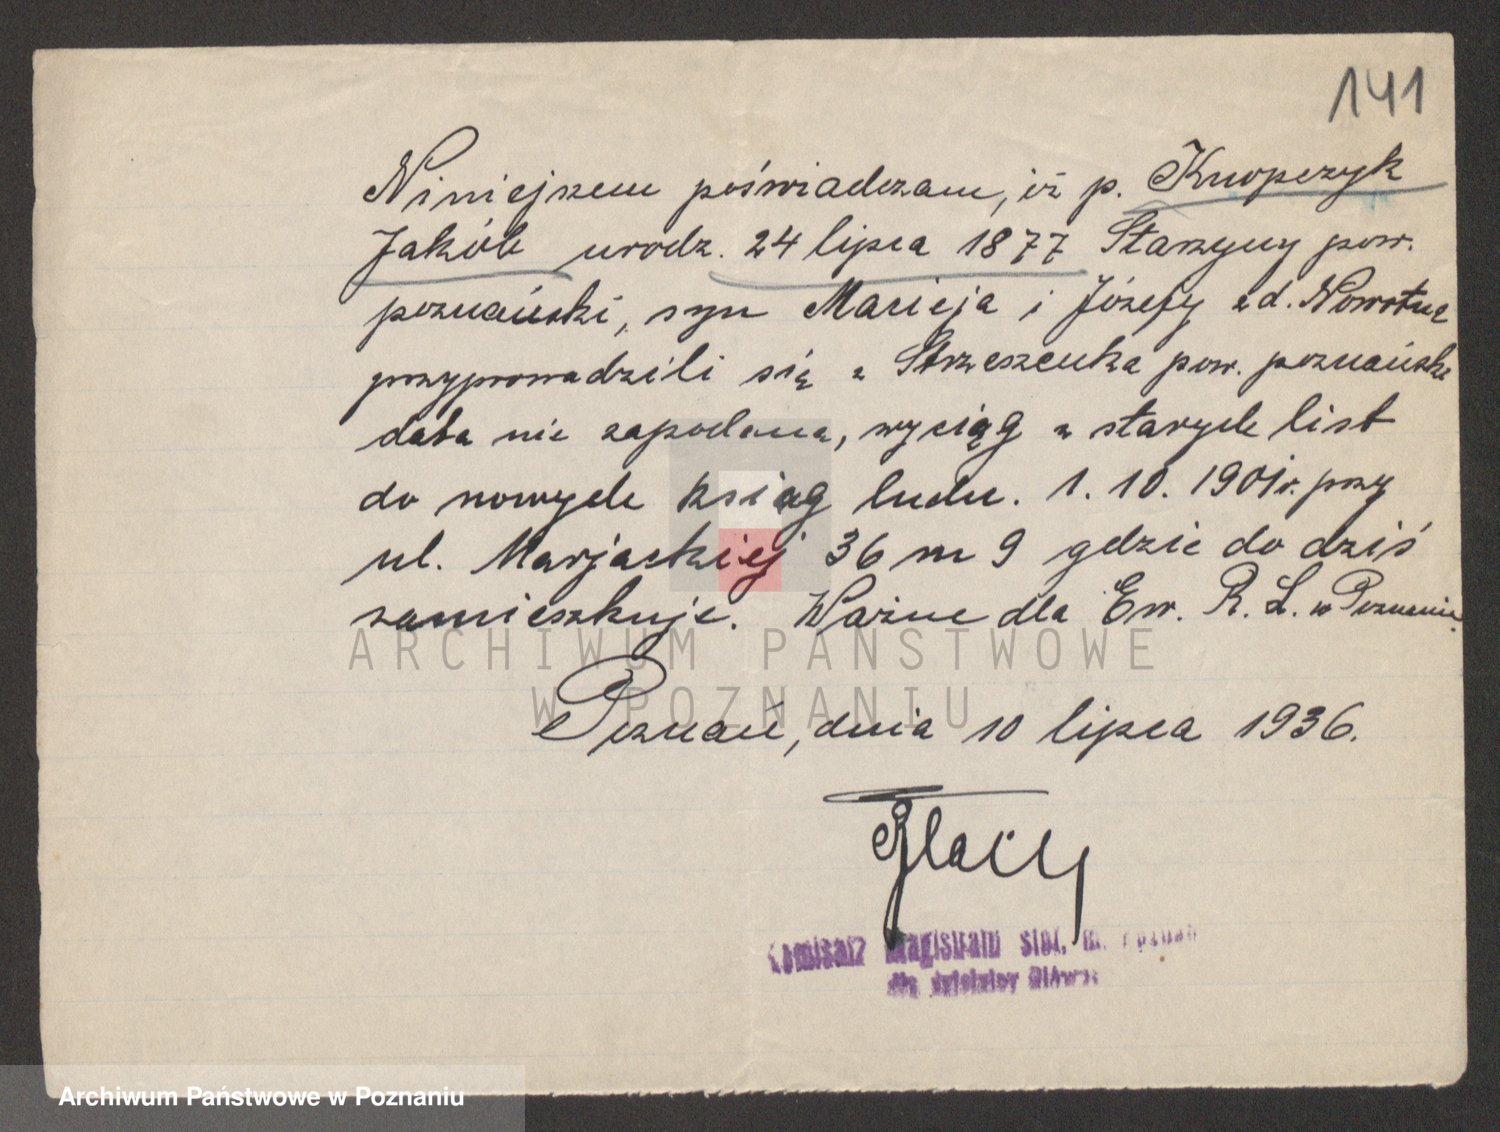 141
Niniejszem poświadczam, iż p. Knopczyk
Jakób urodz. 24 lipca 1877 Starzyny pow.
poznański, syn Macieja i Józefy z d. Nowotna
przyprowadzili się z Strzeszenka pow. poznańsk
data nie zapodana, wyciąg z starych list
do nowych ksiąg ludn. 1. 10. 1901 r. przy
ul. Marjackiej 36 m 9 gdzie do dziś
zamieszkuje. Ważne dla Ew. R. L. w Poznaniu.
ARCHIWUM PAŃSTWOWE
W POZNANIU
Poznań, dnia 10 lipca 1936.
Komisarz Magistratu stoł. m. Poznań
dla dzielnicy Główna
Archiwum Państwowe w Poznaniu